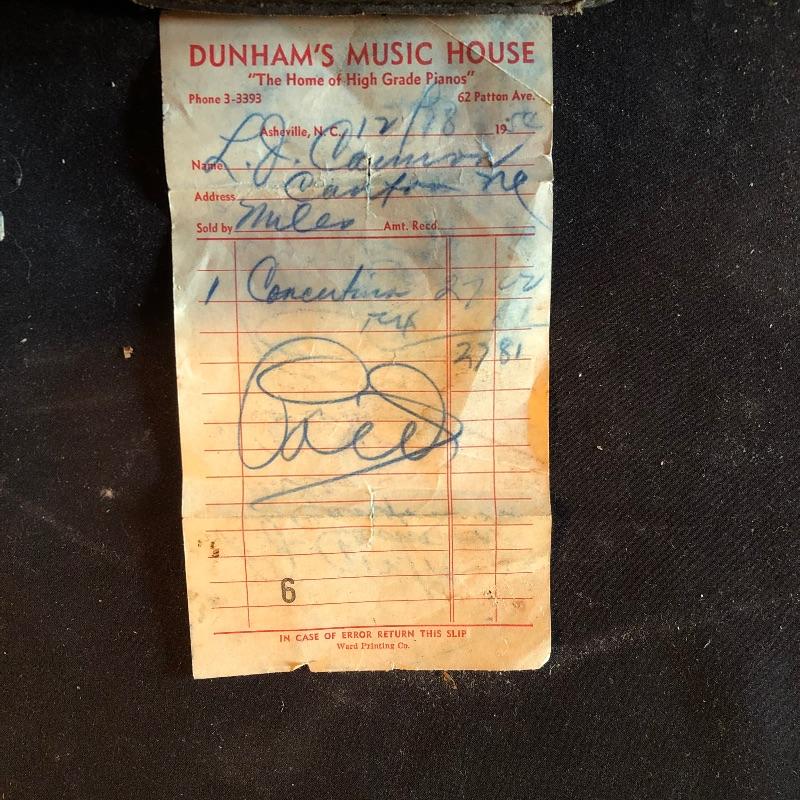 DUNHAM'S MUSIC HOUSE
"The Home of High Grade Pianos"
Phone 3-3393 62 Patton Ave.
Asheville, N. C. 12/ 19
Name L. J. Cannon
Address Canton NC
Sold by Miles Amt. Recd.
1 Concertina 27
Tax 81
27 81
Paid
6
IN CASE OF ERROR RETURN THIS SLIP
Ward Printing Co.